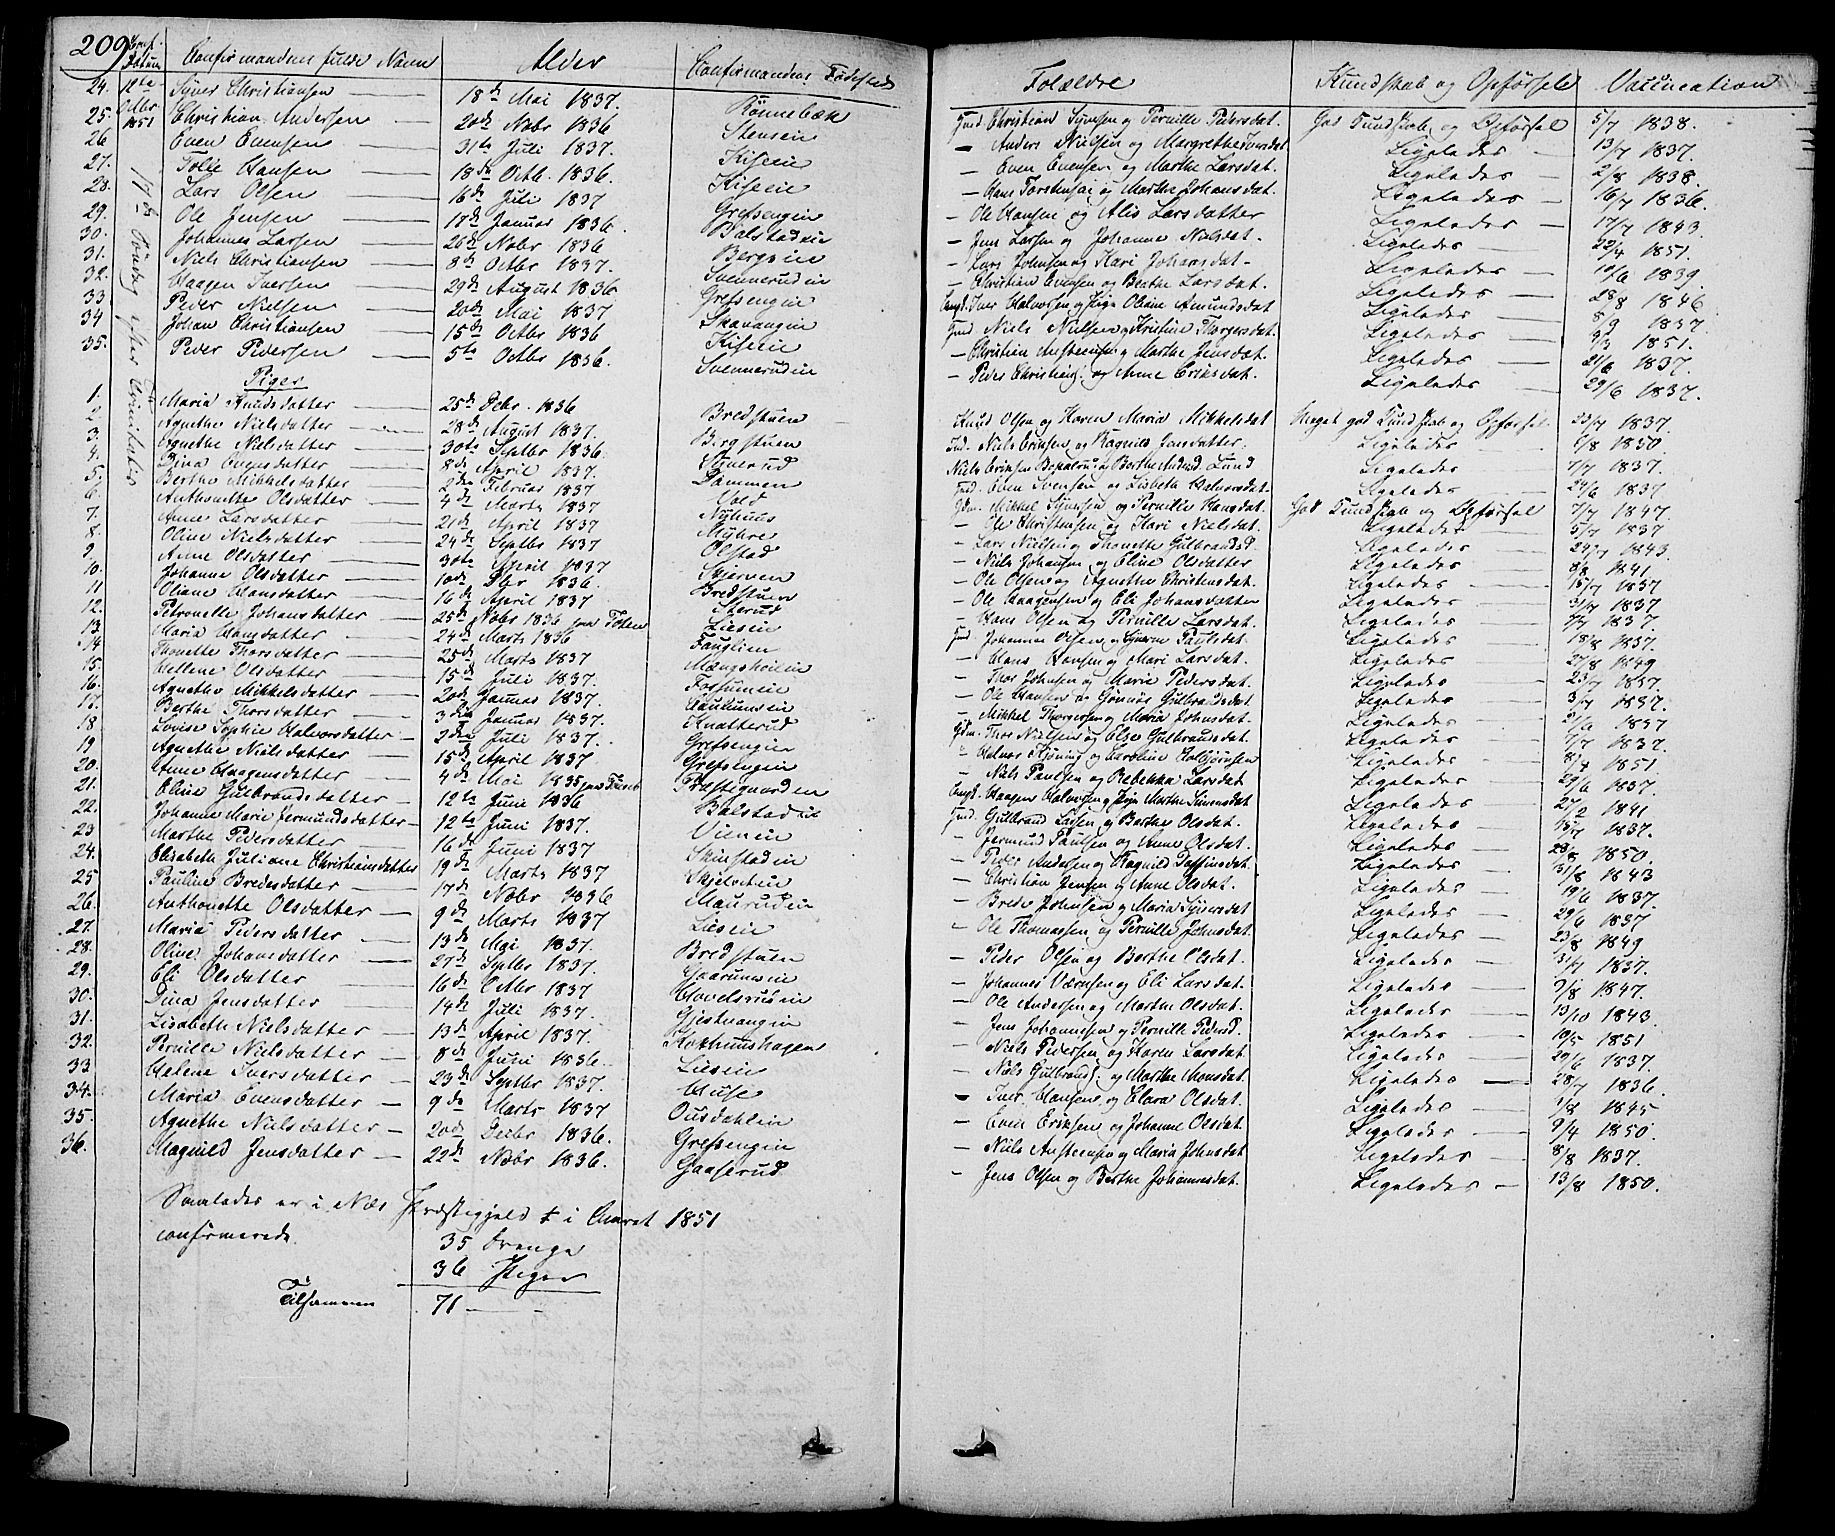 209 Conf. Datum Confirmandens fulde Navn Alder Confirmandens Fødested Forældre Kundskab og Opførsel Vaccination
24. 12te Syver Christiansen 18de Mai 1837. Rønnebæk Gmd. Christian Syversen og Pernille Pedersdat. God Kundskab og Opførsel 5/7 1838.
25. Octbr 1851 Christian Andersen 20de Novbr 1836 Stenseie — Anders Nielsen og Margrethe Iversdat Ligeledes 13/7 1837.
26 Even Evensen 31te Juli 1837. Kiseeie — Even Evensen og Marthe Larsdat. Ligeledes 2/8 1838.
27. Hansen 18de Octb. 1836. Kiseeie — Hans Torstensen og Marthe Johansdat. Ligeledes 16/7 1836.
28. Lars Olsen 16de Juli 1837 Grefsengeie — Ole Hansen og Alis Larsdatter Ligeledes 17/7 1843.
29. Ole Jensen 17de Januar 1836. Balstadeie — Jens Larsen og Johanne Nielsdat. Ligeledes 22/4 1851.
30. Johannes Larsen 26de Novbr 1836 Bergseie — Lars Johnsen og Kari Johansdat Ligeledes 10/6 1839.
31. Niels Christiansen 8de Octbr 1837. Svennerudeie — Christian Evensen og Berthe Larsdat. Ligeledes 28/8 1846
32. Haagen Iversen 29de August 1836 Grefsengeie Ungd. Iver Halvorsen og Pige Oliane Amundsdat Ligeledes 1837.
33 Peder Nielsen 20de Mai 1837 Skavangeie Gmd. Niels Nielsen og Kristine Thorgersdat. Ligeledes 1851.
34 Johan Christiansen 15de Octbr 1836 Kiseeie — Christian Amstensen og Marthe Jensdat. Ligeledes 21/6 1837.
35. Peder Pedersen 5te Octbr 1836. Svennerudeie — Peder Christians. og Anne Eriksdat. Ligeledes 29/6 1837.
17de Søndag efter Trinitatis
Piger
1. Maria Knudsdatter 25de Debr. 1836 Bredstuen Knud Olsen og Karen Maria Mikkelsdat Meget god Kundskab og Opførsel 23/7 1837.
2. Agnethe Nielsdatter 28de August 1837. Bergstuen Ind. Niels Eriksen og Ragnild Jensdatter. Ligeledes 1850.
3. Agnethe Nielsdatter 30te Septbr 1836. Niels Eriksen Ligeledes 7/7 1837.
4. Dina Evensdatter 8de April 1837. Dammen Gmd. Even Svensen og Lisbeth Halvorsdat. Ligeledes 24/6 1837
5. Berthe Mikkelsdatter 2den Februar 1837 Vold Gdm. Mikkel Syversen og Pernille Hansdat. God Kundskab og Opførsel 7/7 1847.
6. Anthonette Olsdatter 4de Marts 1837 Nyhuus — Ole Christensen og Kari Nielsdat. Ligeledes 5/7 1837
7. Anne Larsdatter 21de April 1837 Myhre — Lars Nielsen og Thonette Gulbrandsd. Ligeledes 1843.
8. Oline Nielsdatter 24de Septbr 1837 Olstad — Niels Johansen og Eline Olsdatter Ligeledes 1841.
9. Anne Olsdatter 30te April 1837 Skjerven — Ole Olsen og Agnethe Christensdat. Ligeledes 15/7 1837
10. Johanne Olsdatter 10de Dbr. 1836. Bredstuen — Ole Haagensen og Eli Johansdatter Ligeledes 31/7 1837
11 Oliane Hansdatter 16de April 1837 — Hans Olsen og Pernille Larsdat. Ligeledes 7/7 1837
12. Petronelle Johansdatter 25de Novbr 1836 paa Toten Lieseie Gmd. Johannes Olsen og Syverine Paulsdat. Ligeledes 18/8 1837.
13. Maria Hansdatter 24de Marts 1836 Fauglieie — Hans Hansen og Mari Larsdat. Ligeledes 27/8 1849
14. Thonette Thorsdatter 25de Marts 1837 Mængshoieie — Thor Johnsen og Marie Pedersdat. Ligeledes 23/7 1837.
15. Hellene Olsdatter 15de Juli 1837. Fossumeie — Ole Hansen og Gulbrandsdat Ligeledes 3/7 1837.
16. Agnethe Mikkelsdatter 20de Januar 1837. — Mikkel Thorgersen og Maria Johnsdat. Ligeledes 21/6 1837
17. Berthe Thorsdatter 3die Januar 1837. Knatterud Gdm. Thor Nielsen og Else Gulbrandsdat. Ligeledes 1/7 1837.
18 Lovise Sophie Halvorsdatter 2den Juli 1837. Grefsengeie Halvor og Caroline Ligeledes 8/4 1851.
19 Agnethe Nielsdatter 15de April 1837 Grefsengeie — Niels Paulsen og Rebekka Larsdat Ligeledes 29/6 1837.
20. Anne Haagensdatter 4de Mai 1835 Præstegaardeie Ungd. Haagen Halvorsen og Pige Marthe Simensdat Ligeledes 27/2 1841
21. Eline Gulbrandsdatter 12te Juni 1836 Balstadeie Gmd. Gulbrand Larsen og Berthe Olsdat. Ligeledes 15/7 1837.
22. Johanne Marie Jermundsdatter 12te Juni 1837. Vieneie — Jermund Paulsen og Anne Olsdat. Ligeledes 28/8 1850.
23 Marthe Pedersdatter 16de Juni 1837 Skinstadeie — Peder Andersen og Ragnild Ligeledes 31/8 1843
24. Elisabeth Juliane Christiansdatter 19de Marts 1837 Skjelveeie — Christian Jensen og Anne Olsdat. Ligeledes 19/6 1837.
25 Pauline Bredesdatter 17de Novbr 1836 Maurudeie — Brede Johnsen og Maria Syversdat Ligeledes 29/6 1837
26. Anthonette Olsdatter 9de Marts 1837 Lieseie — Ole Thomassen og Pernille Johnsdat. Ligeledes 23/8 1849
27. Maria Pedersdatter 13de Mai 1837. Bredstuen — Peder Olsen og Berthe Olsdat. Ligeledes 31/7 1837.
28. Oline Johansdatter 27de Septbr 1837. Gaarumeie — Johannes Værnsen og Eli Larsdat Ligeledes 9/8 1847.
29. Eli Olsdatter 16de Octbr 1837 Hovelsrudeie — Ole Andersen og Marthe Olsdat. Ligeledes 13/10 1843.
30. Dina Jensdatter 14de Juli 1837. Gjestvangeie — Jens Johannesen og Pernille Pedersd. Ligeledes 19/5 1851
31. Lisabeth Nielsdatter 13de April 1837. Korthuushagen — Niels Pedersen og Karen Larsdat. Ligeledes 29/6 1837.
32. Pernille Nielsdatter 8de Juni 1836. Lieseie — Niels Gulbrands. og Marthe Monsdat. Ligeledes 28/7 1836.
33 Helene Iversdatter 23de Septbr 1837. Huse — Iver Hansen og Clara Olsdat. Ligeledes 1/8 1845
34. Maria Evensdatter 9de Marts 1837 Ousdahleie — Even Eriksen og Johanne Olsdat. Ligeledes 9/4 1850.
35. Agnethe Nielsdatter 20de Decbr 1836. Grefsengeie — Niels Amstensen og Maria Johnsdat Ligeledes 8/8 1837.
36. Magnild Jensdatter 22de Novbr 1836. Gaaserud — Jens Olsen og Berthe Johannesdat. Ligeledes 13/8 1850.
Saaledes er i Næs Præstegjeld i Aaret 1851
confirmerede 35 Drenge
36 Piger
Tilsammen 71